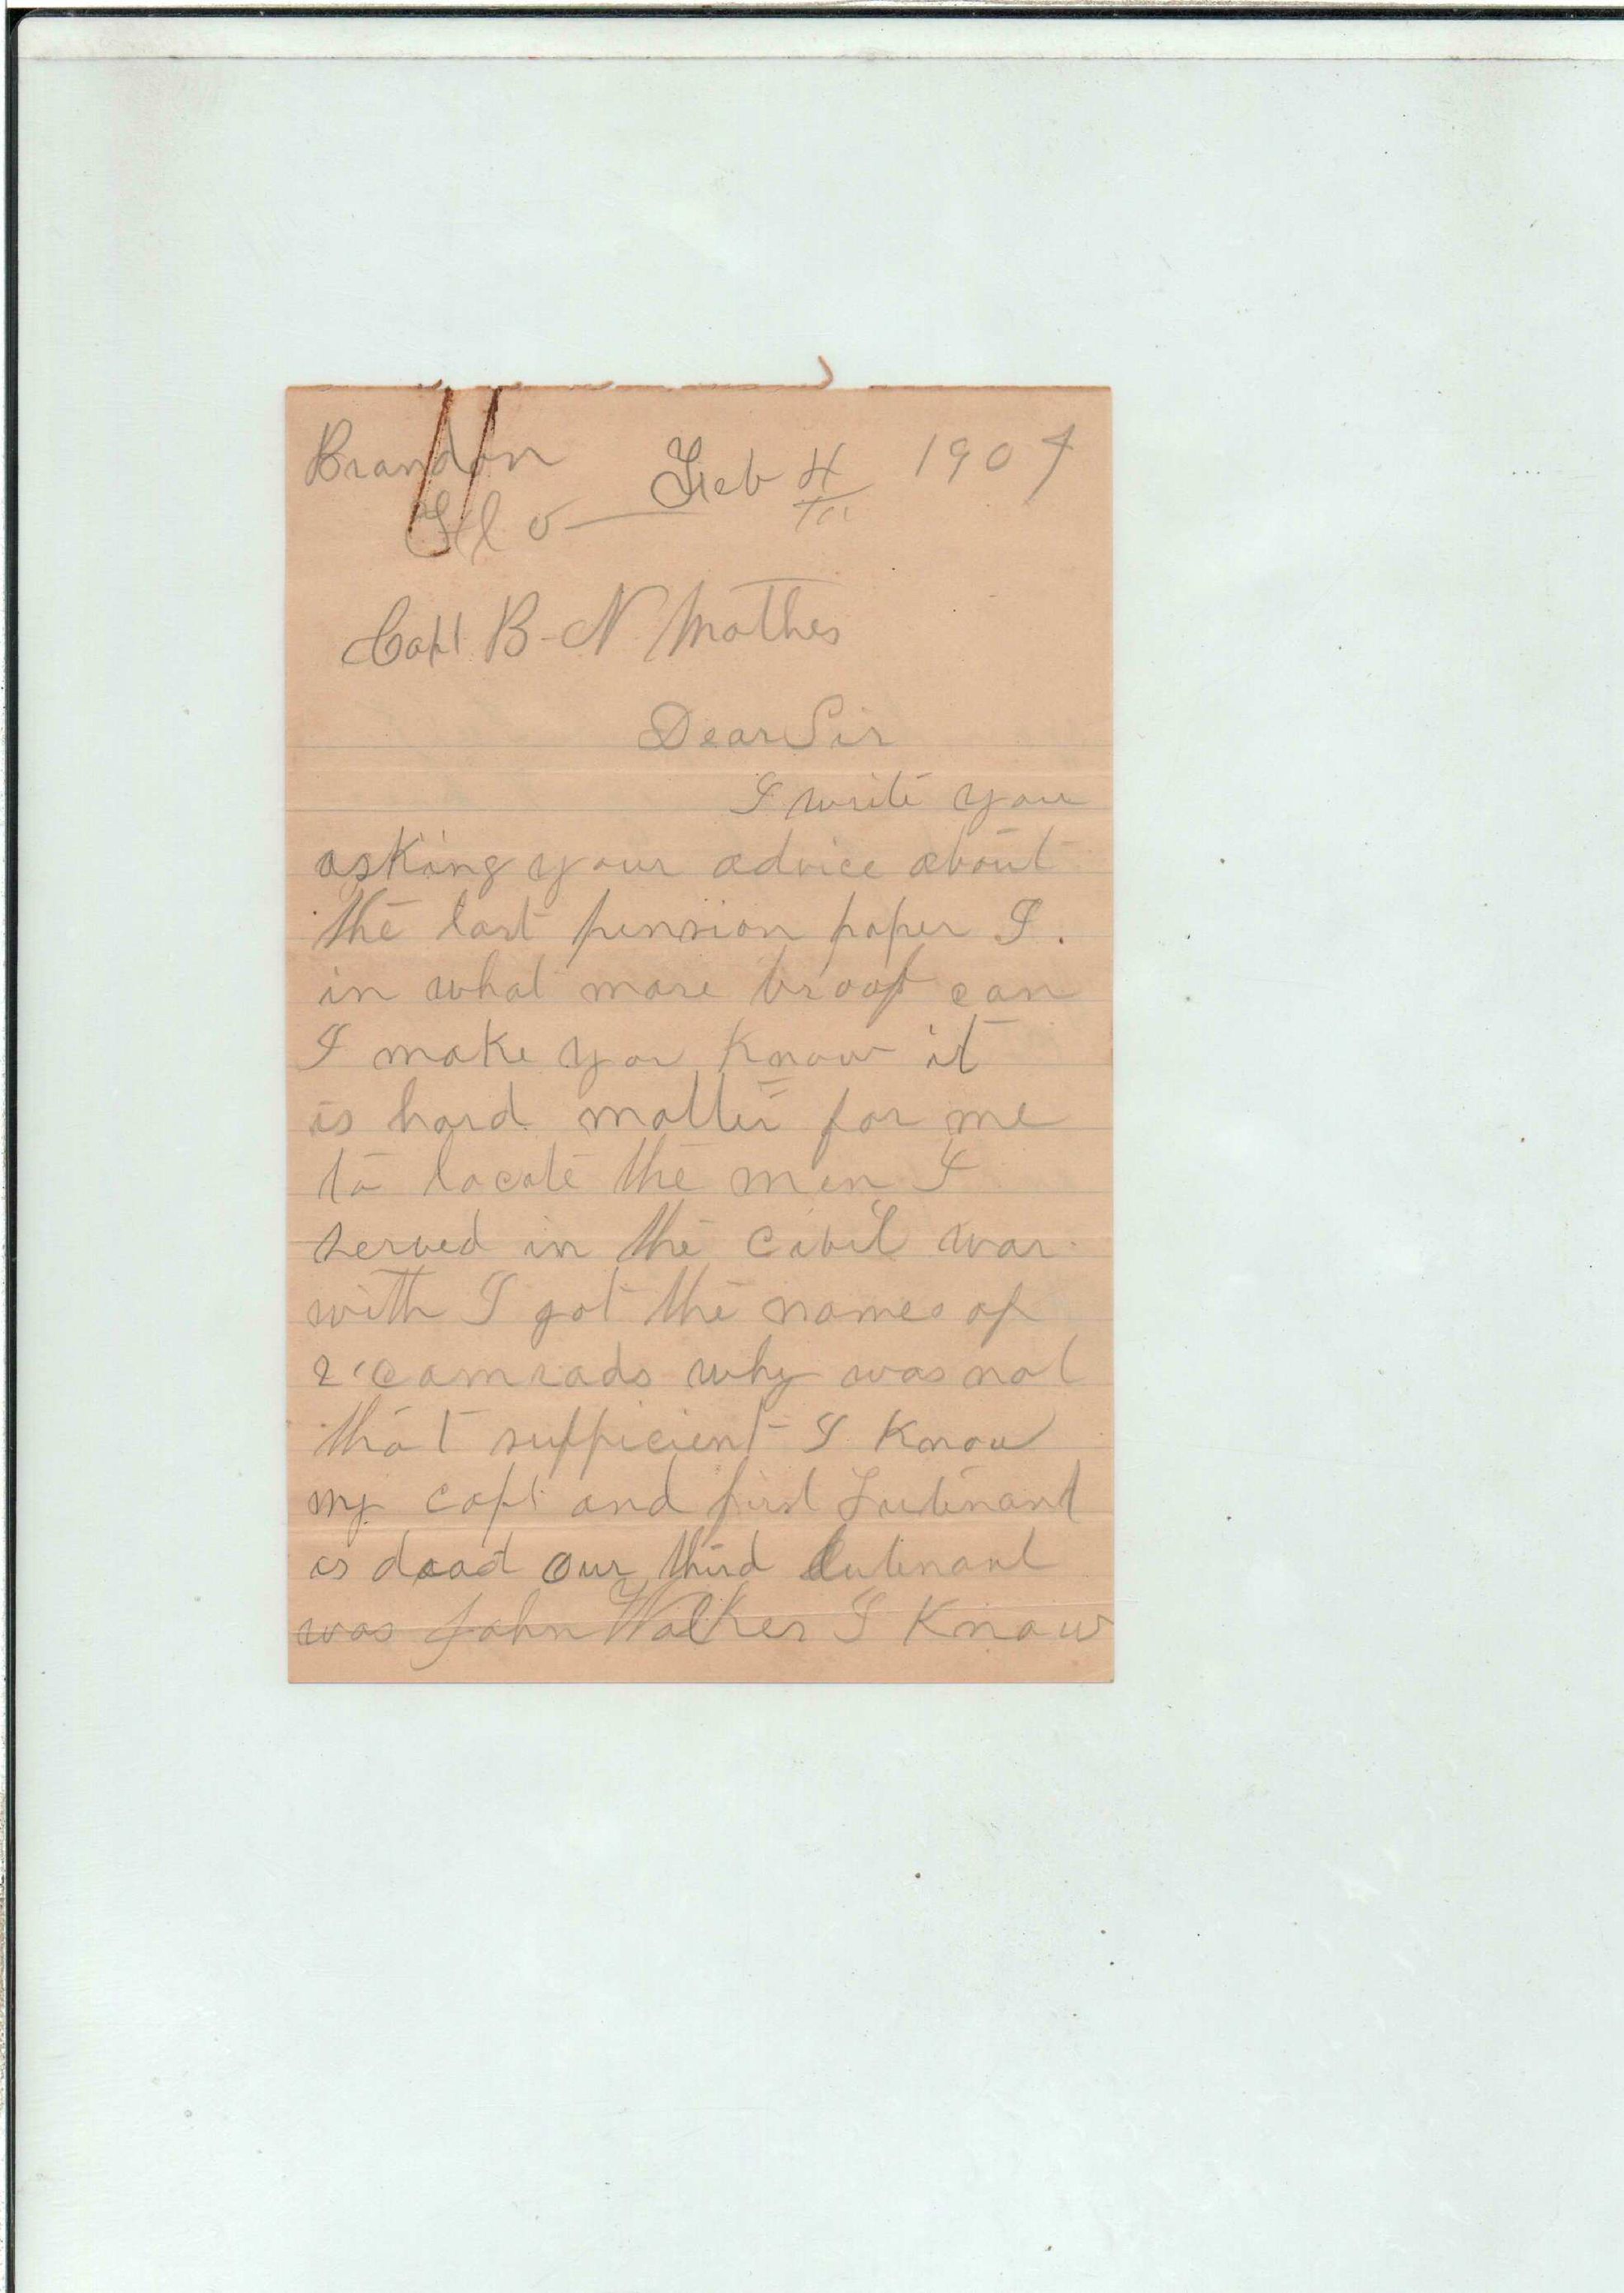 Brandon
Fla Feb 4th 1907
Capt B-N Mathes
Dear Sir
I write you
asking your advice about
the last pension paper I.
in what more broof can
I make you know it
is hard matter for me
to locate the men I
served in the civil war
with I got the names of
2 camrads why was not
that sufficient I know
my capt and first Lutenant
is dead our third lutenant
was John Walker I know